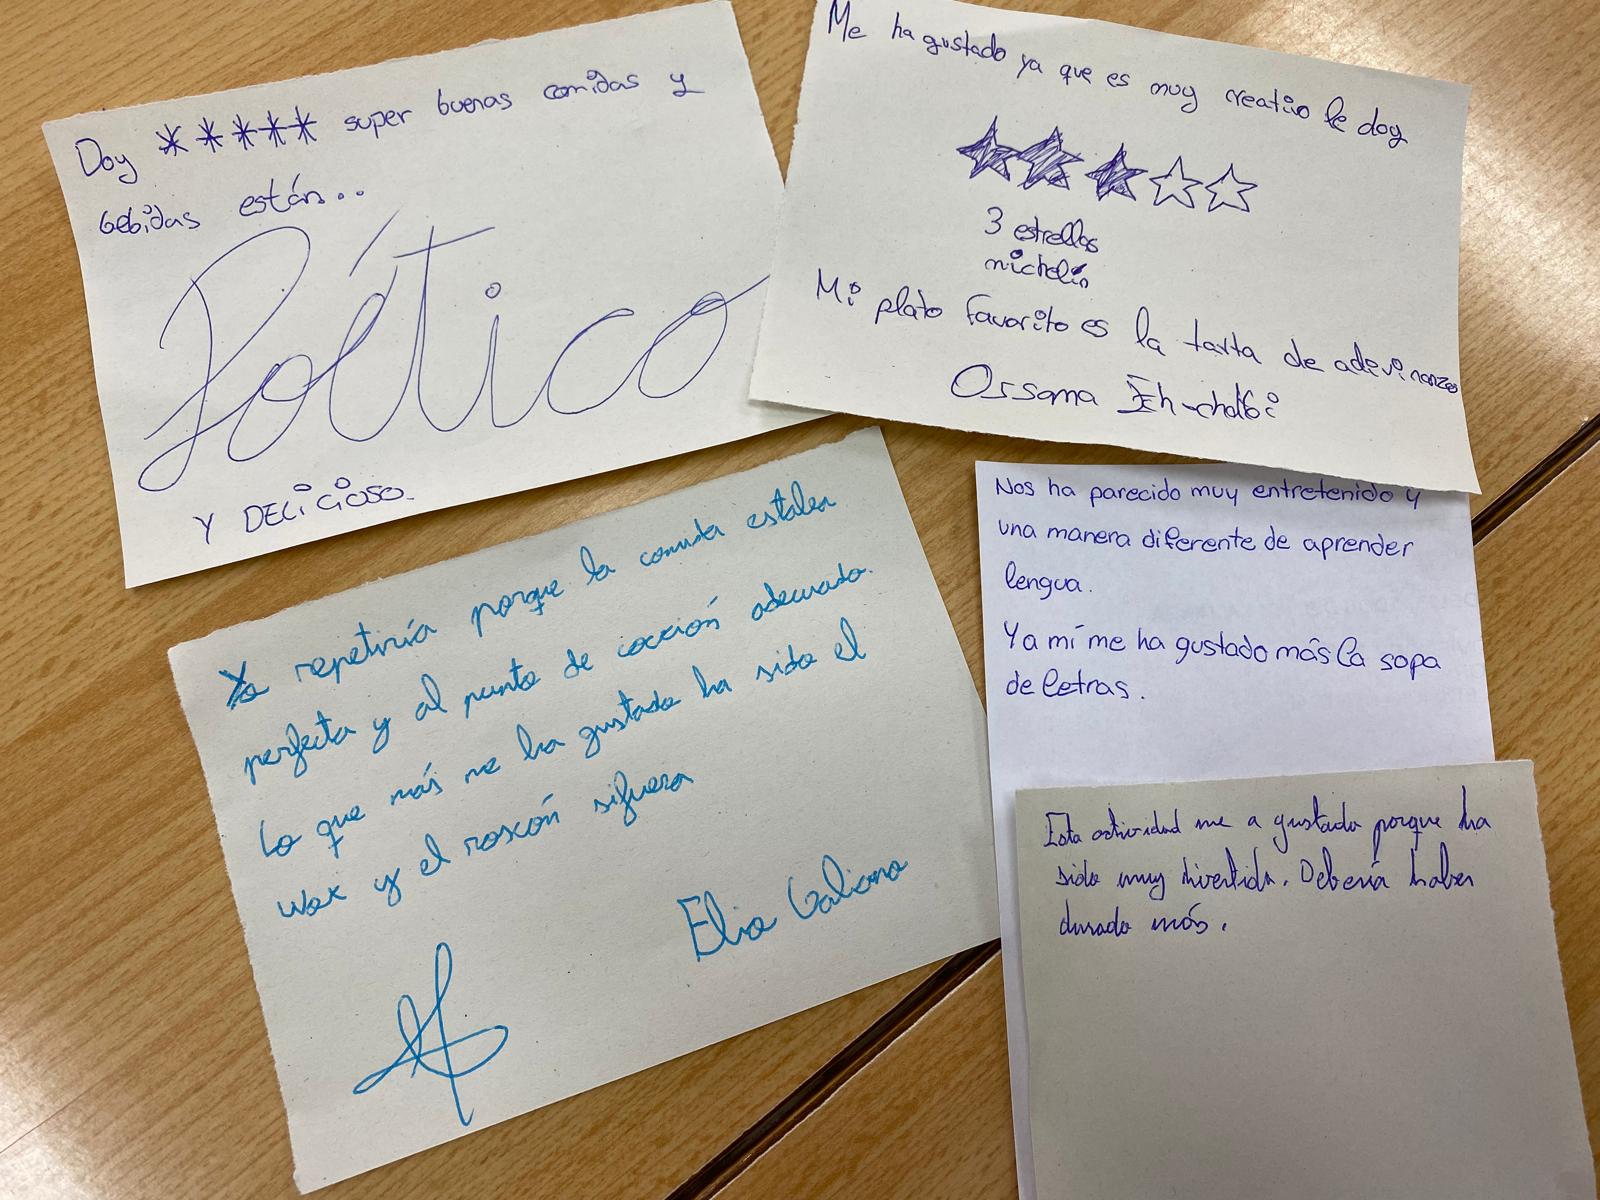 Doy ***** super buenas comidas y
bebidas están...
Poético
Y DELICIOSO.
Me ha gustado ya que es muy creativo le doy
3 estrellas
michelín
Mi plato favorito es la tarta de adivinanzas
Ossama Ech-chalbi
Yo repetiría porque la comida estaba
perfecta y al punto de cocción adecuado.
Lo que más me ha gustado ha sido el
wox y el roscón sifuera
Elia Galiana
Nos ha parecido muy entretenido y
una manera diferente de aprender
lengua.
Y a mí me ha gustado más la sopa
de letras.
Esta actividad me a gustado porque ha
sido muy divertida. Debería haber
durado más.